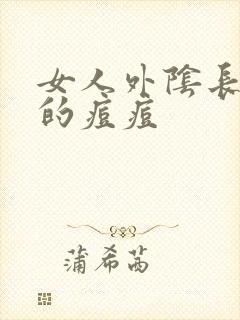 女人外陰長
的痘痘
蒲希茜